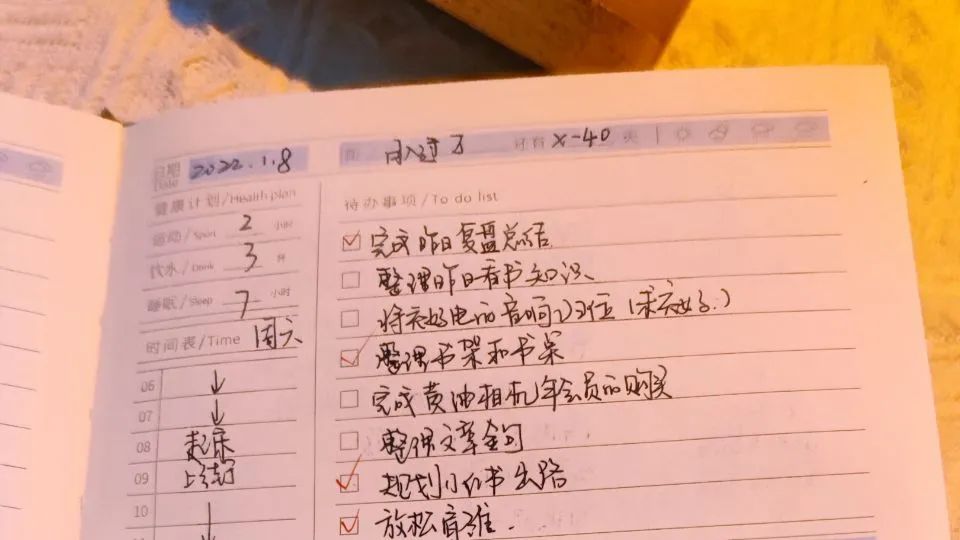 日期 Date 2022.1.8
距 还有 x-40 天
健康计划/Health plan
运动/Sport 2 小时
饮水/Drink 3 杯
睡眠/Sleep 7 小时
时间表/Time 周六
06
07
08 起床
09
10
待办事项/To do list
完成昨日复盘总结
整理昨日看书知识
整理书架和书桌
完成黄油相机年会员的购买
整理文章金句
规划小红书出路
放松肩颈.